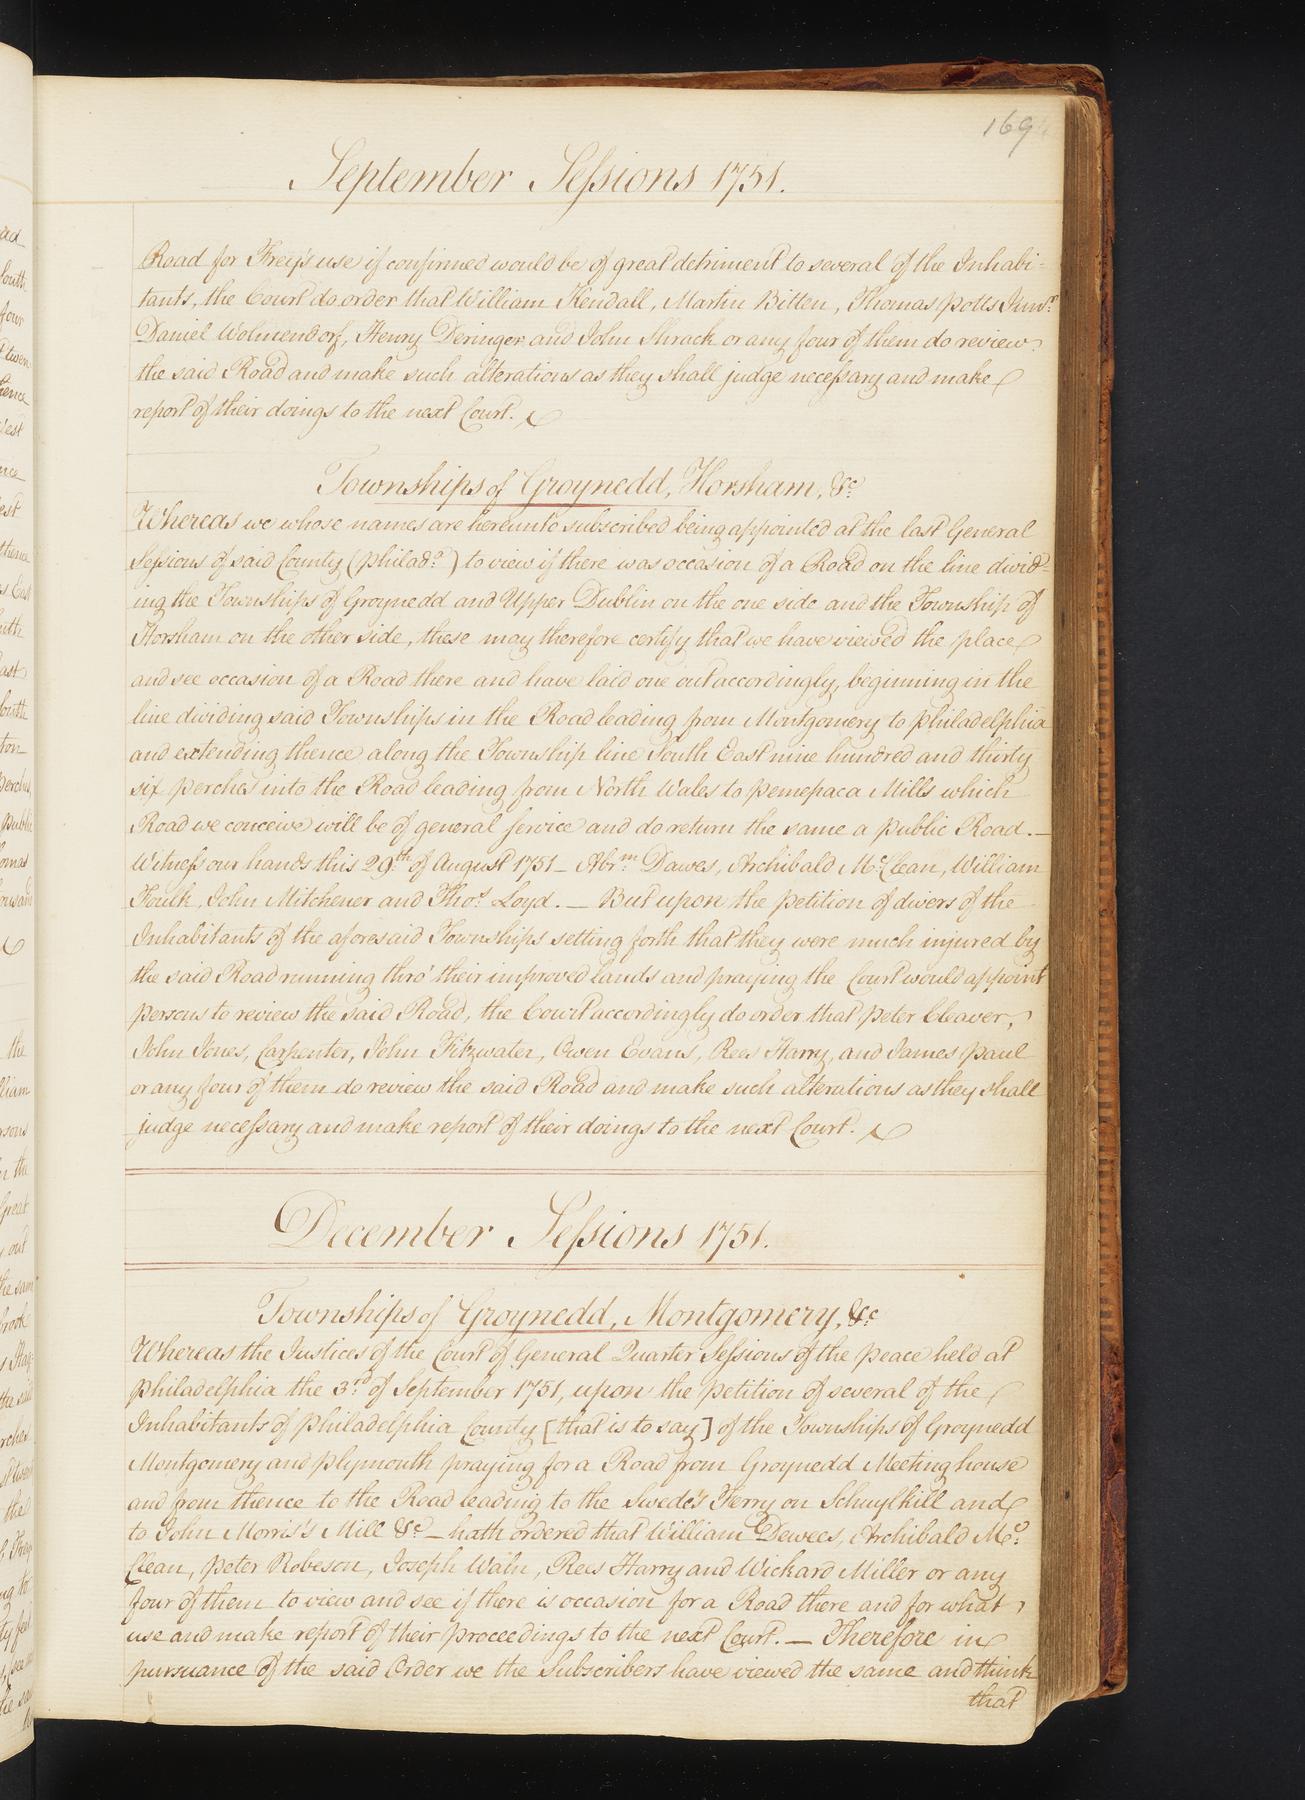 169
September Sessions 1751.
Road for Frey's use if confirmed would be of great detriment to several of the Inhabi=
tants, the Court do order that William Kendall, Martin Bitten, Thomas Potts Junr.
Daniel Wolmendorf, Henry Deringer and John Shrack or any four of them do review
the said Road and make such alterations as they shall judge necessary and make
report of their doings to the next Court.
Townships of Groynedd, Horsham, &c.
Whereas we whose names are hereunto subscribed being appointed at the last General
Sessions of said County (Philada.) to view if there was occasion of a Road on the line divid=
ing the Townships of Groynedd and Upper Dublin on the one side and the Township of
Horsham on the other side, these may therefore certify that we have viewed the place
and see occasion of a Road there and have laid one out accordingly, beginning in the
line dividing said Townships in the Road leading from Montgomery to Philadelphia
and extending thence along the Township line South East nine hundred and thirty
six perches into the Road leading from North Wales to Pemepaca Mills which
Road we conceive will be of general service and do return the same a public Road.—
Witness our hands this 29th. of August 1751 — Abrm. Dawes, Archibald Mc.Clean, William
Foulk, John Mitchener and Thos. Loyd. — But upon the petition of divers of the
Inhabitants of the aforesaid Townships setting forth that they were much injured by
the said Road running thro' their improved lands and praying the Court would appoint
persons to review the said Road, the Court accordingly do order that Peter Cleaver,
John Jones, Carpenter, John Fitzwater, Owen Evans, Rees Harry, and James Paul
or any four of them do review the said Road and make such alterations as they shall
judge necessary and make report of their doings to the next Court.
December Sessions 1751.
Townships of Groynedd, Montgomery, &c.
Whereas the Justices of the Court of General Quarter Sessions of the Peace held at
Philadelphia the 3rd. of September 1751, upon the petition of several of the
Inhabitants of Philadelphia County [that is to say] of the Townships of Groynedd
Montgomery and Plymouth praying for a Road from Groynedd Meeting house
and from thence to the Road leading to the Swede's Ferry on Schuylkill and
to John Morris's Mill &c. — hath ordered that William Dewees, Archibald Mc.
Clean, Peter Robeson, Joseph Waln, Rees Harry and Wickard Miller or any
four of them to view and see if there is occasion for a Road there and for what
use and make report of their proceedings to the next Court. — Therefore in
pursuance of the said Order we the Subscribers have viewed the same and think
that